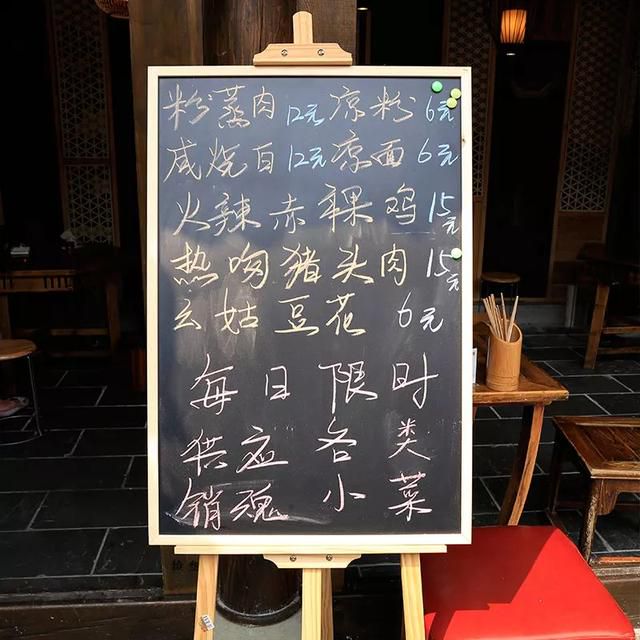 粉蒸肉 12元 凉粉 6元
咸烧白 12元 凉面 6元
火辣赤裸鸡 15元
热吻猪头肉 15元
云姑豆花 6元
每日限时
供应各类
销魂小菜